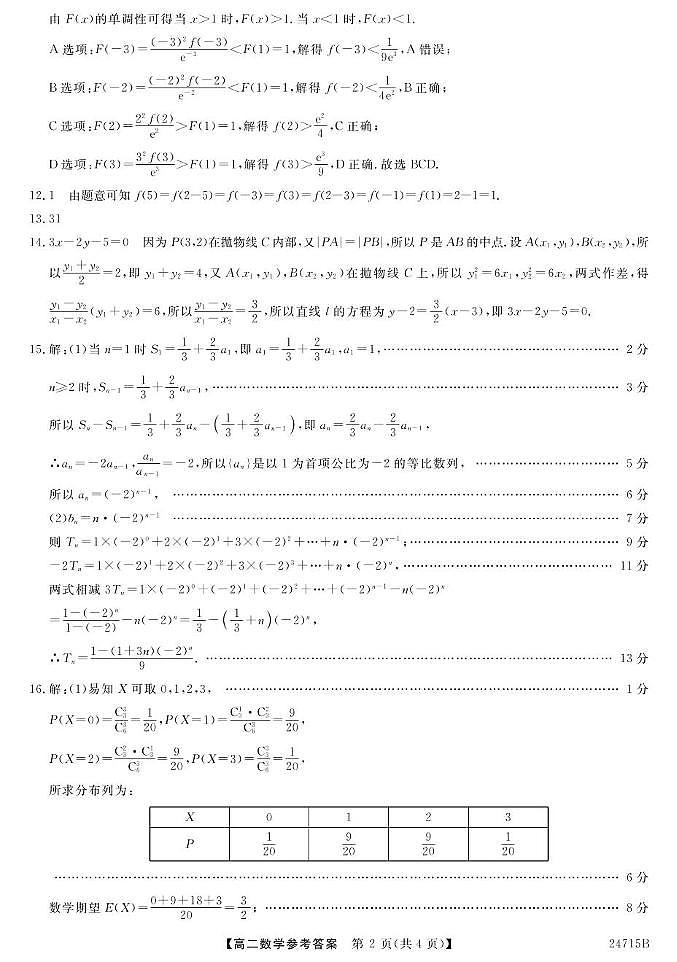 由 F(x)的单调性可得当 x>1 时,F(x)>1. 当 x<1 时,F(x)<1.
A 选项:F(-3)=\frac{(-3)^2 f(-3)}{e^{-3}}<F(1)=1,解得 f(-3)<\frac{1}{9e^3},A 错误;
B 选项:F(-2)=\frac{(-2)^2 f(-2)}{e^{-2}}<F(1)=1,解得 f(-2)<\frac{1}{4e^2},B 正确;
C 选项:F(2)=\frac{2^2 f(2)}{e^2}>F(1)=1,解得 f(2)>\frac{e^2}{4},C 正确;
D 选项:F(3)=\frac{3^2 f(3)}{e^3}>F(1)=1,解得 f(3)>\frac{e^3}{9},D 正确. 故选 BCD.
12. 1 由题意可知 f(5)=f(2-5)=f(-3)=f(3)=f(2-3)=f(-1)=f(1)=2-1=1.
13. 31
14. 3x-2y-5=0 因为 P(3,2)在抛物线 C 内部,又|PA|=|PB|,所以 P 是 AB 的中点. 设 A(x_1,y_1),B(x_2,y_2),所
以\frac{y_1+y_2}{2}=2,即 y_1+y_2=4,又 A(x_1,y_1),B(x_2,y_2)在抛物线 C 上,所以 y_1^2=6x_1,y_2^2=6x_2,两式作差,得
\frac{y_1-y_2}{x_1-x_2}(y_1+y_2)=6,所以\frac{y_1-y_2}{x_1-x_2}=\frac{3}{2},所以直线 l 的方程为 y-2=\frac{3}{2}(x-3),即 3x-2y-5=0.
15. 解:(1)当 n=1 时 S_1=\frac{1}{3}+\frac{2}{3}a_1,即 a_1=\frac{1}{3}+\frac{2}{3}a_1,a_1=1, …… 2 分
n≥2 时,S_{n-1}=\frac{1}{3}+\frac{2}{3}a_{n-1}, …… 3 分
所以 S_n-S_{n-1}=\frac{1}{3}+\frac{2}{3}a_n-(\frac{1}{3}+\frac{2}{3}a_{n-1}),即 a_n=\frac{2}{3}a_n-\frac{2}{3}a_{n-1},
∴a_n=-2a_{n-1},\frac{a_n}{a_{n-1}}=-2,所以{a_n}是以 1 为首项公比为-2 的等比数列, …… 5 分
所以 a_n=(-2)^{n-1}, …… 6 分
(2)b_n=n·(-2)^{n-1} …… 7 分
则 T_n=1×(-2)^0+2×(-2)^1+3×(-2)^2+…+n·(-2)^{n-1}; …… 9 分
-2T_n=1×(-2)^1+2×(-2)^2+3×(-2)^3+…+n·(-2)^n, …… 11 分
两式相减 3T_n=1×(-2)^0+(-2)^1+(-2)^2+…+(-2)^{n-1}-n(-2)^n
=\frac{1-(-2)^n}{1-(-2)}-n(-2)^n=\frac{1}{3}-(\frac{1}{3}+n)(-2)^n,
∴T_n=\frac{1-(1+3n)(-2)^n}{9}. …… 13 分
16. 解:(1)易知 X 可取 0,1,2,3, …… 1 分
P(X=0)=\frac{C_3^3}{C_6^3}=\frac{1}{20},P(X=1)=\frac{C_3^1·C_3^2}{C_6^3}=\frac{9}{20},
P(X=2)=\frac{C_3^2·C_3^1}{C_6^3}=\frac{9}{20},P(X=3)=\frac{C_3^3}{C_6^3}=\frac{1}{20},
所求分布列为:
X 0 1 2 3
P \frac{1}{20} \frac{9}{20} \frac{9}{20} \frac{1}{20}
…… 6 分
数学期望 E(X)=\frac{0+9+18+3}{20}=\frac{3}{2}; …… 8 分
【高二数学参考答案 第 2 页(共 4 页)】 24715B